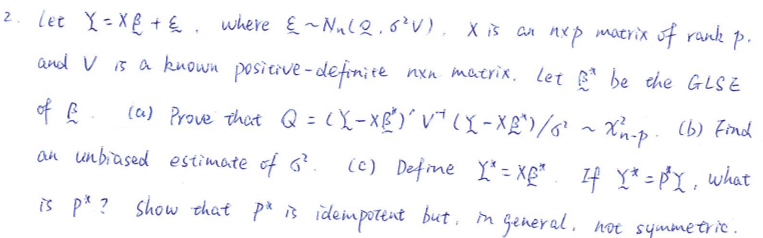 2. Let Y = Xβ + ε, where ε ~ Nₙ(0, σ²V), X is an nxp matrix of rank p.
and V is a known positive-definite nxn matrix. Let β* be the GLSE
of β. (a) Prove that Q = (Y-Xβ*)' V⁻¹ (Y-Xβ*)/σ² ~ χ²ₙ₋ₚ. (b) Find
an unbiased estimate of σ². (c) Define Y* = Xβ*. If Y* = P*Y, what
is P*? Show that P* is idempotent but, in general, not symmetric.